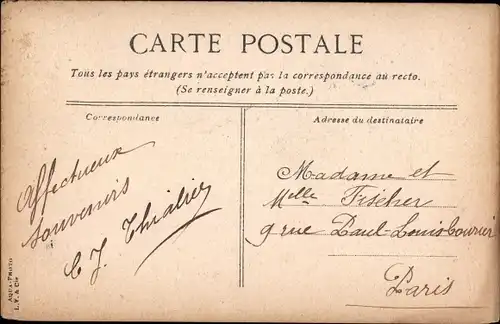 CARTE POSTALE
Tous les pays étrangers n'acceptent pas la correspondance au recto.
(Se renseigner à la poste.)
Correspondance
Affectueux
souvenirs
C J. Thialier
Adresse du destinataire
Madame et
Melle Fischer
9 rue Paul-Louis Courier
Paris
AQUA-PHOTO
L.V. & Cie